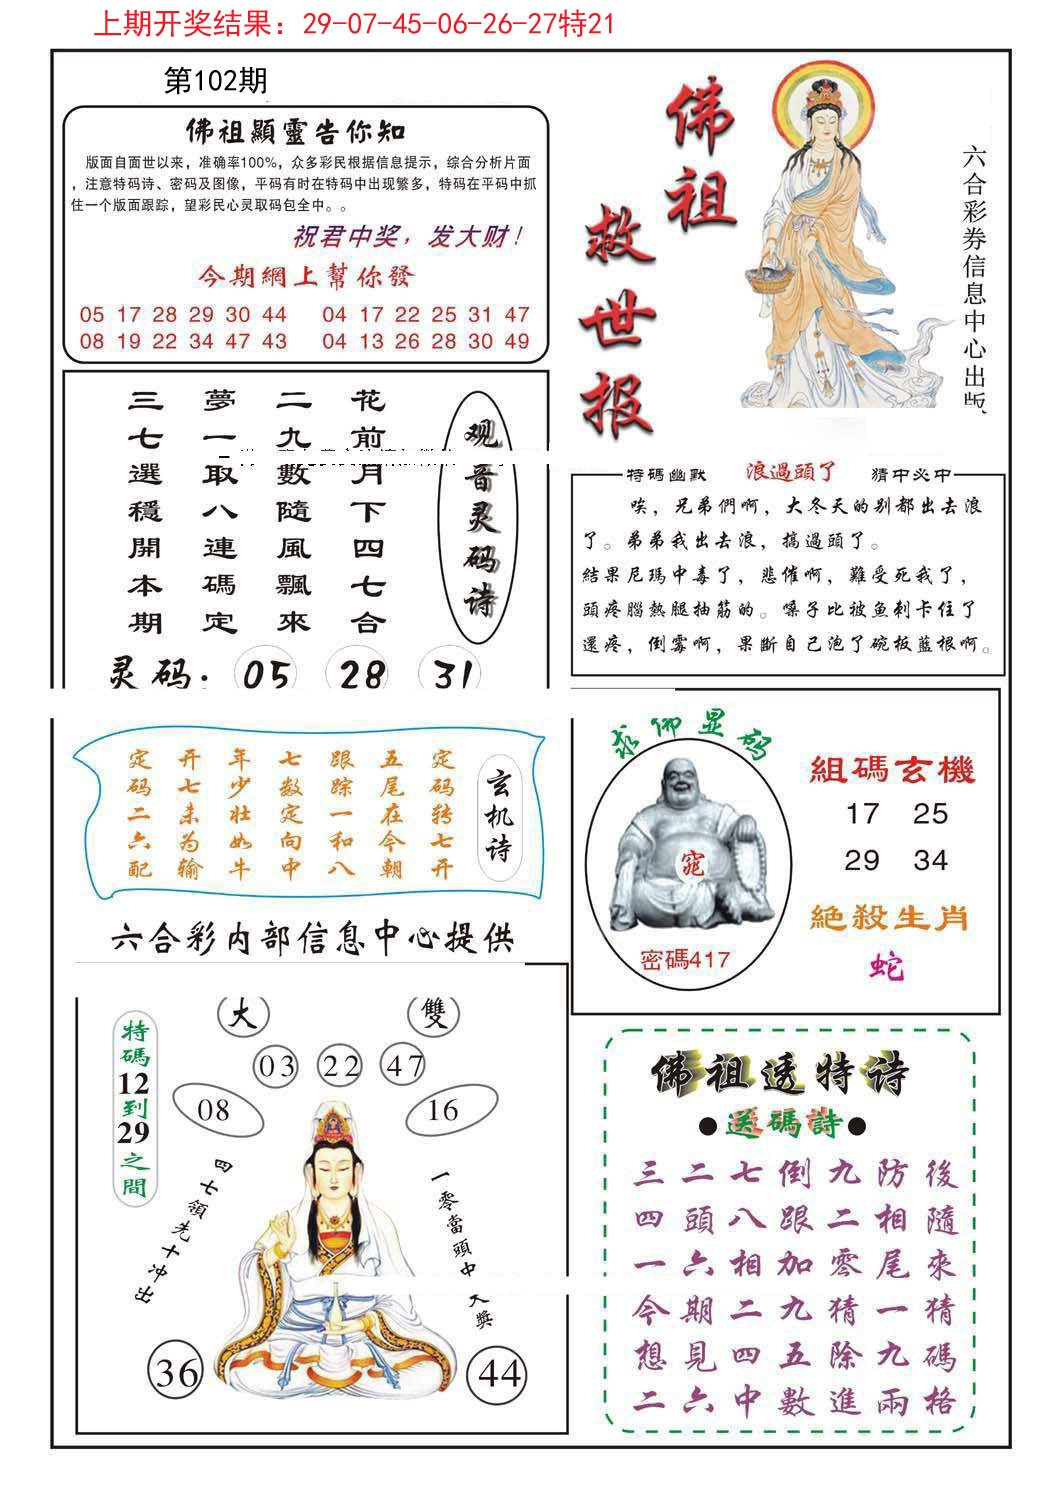 上期开奖结果：29-07-45-06-26-27特21
第102期
佛祖顯靈告你知
版面自面世以来，准确率100%，众多彩民根据信息提示，综合分析片面
，注意特码诗、密码及图像，平码有时在特码中出现繁多，特码在平码中抓
住一个版面跟踪，望彩民心灵取码包全中。。
祝君中奖，发大财！
今期網上幫你發
05 17 28 29 30 44 04 17 22 25 31 47
08 19 22 34 47 43 04 13 26 28 30 49
佛祖
救世报
六合彩券信息中心出版
观音灵码诗
花前月下四七合
二九數隨風飄來
夢一取八連碼定
三七選穩開本期
灵码：05 28 31
特碼幽默 浪過頭了 猜中必中
唉，兄弟們啊，大冬天的别都出去浪
了。弟弟我出去浪，搞過頭了。
結果尼瑪中毒了，悲催啊，難受死我了，
頭疼腦熱腿抽筋的。嗓子比被鱼刺卡住了
還疼，倒霉啊，果斷自己泡了碗板藍根啊。
玄机诗
定码转七开
五尾在今朝
跟踪一和八
七数定向中
年少壮如牛
开七未为输
定码二六配
六合彩内部信息中心提供
求佛显码
窕
密碼417
組碼玄機
17 25
29 34
絕殺生肖
蛇
特碼12到29之間
大 雙
03 22 47
08 16
四七領先十冲出
一零當頭中大獎
36 44
佛祖透特诗
●送碼詩●
三二七倒九防後
四頭八跟二相隨
一六相加零尾來
今期二九猜一猜
想見四五除九碼
二六中數進兩格